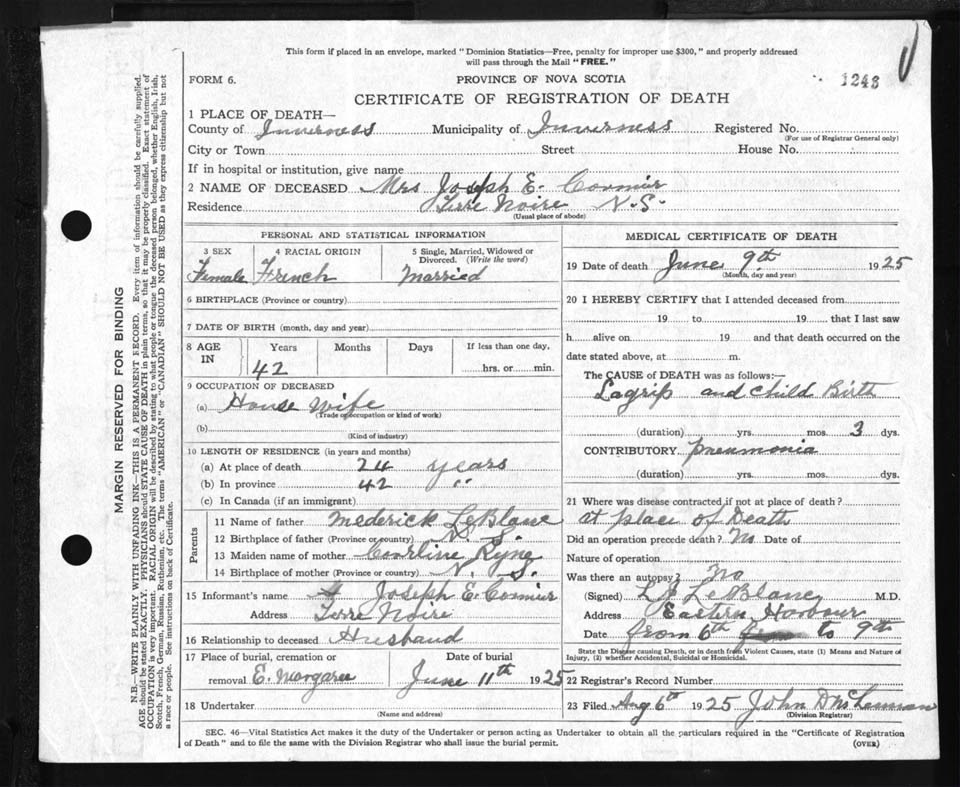 This form if placed in an envelope, marked "Dominion Statistics—Free, penalty for improper use $300," and properly addressed
will pass through the Mail "FREE."
FORM 6.
PROVINCE OF NOVA SCOTIA
1243
CERTIFICATE OF REGISTRATION OF DEATH
1 PLACE OF DEATH—
County of Inverness Municipality of Inverness Registered No.
(For use of Registrar General only)
City or Town Street House No.
If in hospital or institution, give name
2 NAME OF DECEASED Mrs Joseph E. Cormier
Residence Terre Noire N.S.
(Usual place of abode)
PERSONAL AND STATISTICAL INFORMATION
3 SEX 4 RACIAL ORIGIN 5 Single, Married, Widowed or
Divorced. (Write the word)
Female French Married
6 BIRTHPLACE (Province or country)
7 DATE OF BIRTH (month, day and year)
8 AGE IN Years Months Days If less than one day,
42 hrs. or min.
9 OCCUPATION OF DECEASED
(a) House wife
(Trade occupation or kind of work)
(b)
(Kind of industry)
10 LENGTH OF RESIDENCE (in years and months)
(a) At place of death 24 years
(b) In province 42 "
(c) In Canada (if an immigrant)
Parents
11 Name of father Mederick LeBlanc
12 Birthplace of father (Province or country) N. S.
13 Maiden name of mother
14 Birthplace of mother (Province or country) N. S.
15 Informant's name Joseph E. Cormier
Address Terre Noire
16 Relationship to deceased Husband
17 Place of burial, cremation or Date of burial
removal E. Margaree June 11th 1925
18 Undertaker
(Name and address)
MEDICAL CERTIFICATE OF DEATH
19 Date of death June 9th 1925
(Month, day and year)
20 I HEREBY CERTIFY that I attended deceased from
19 to 19 that I last saw
h alive on 19 and that death occurred on the
date stated above, at m.
The CAUSE of DEATH was as follows:—
Lagrip and child Birth
(duration) yrs. mos. 3 dys.
CONTRIBUTORY pneumonia
(duration) yrs. mos. dys.
21 Where was disease contracted if not at place of death?
at place of Death
Did an operation precede death? No Date of
Nature of operation
Was there an autopsy? No
(Signed) LeBlanc M.D.
Address Eastern Harbour
Date from 6th to 9th
State the Disease causing Death, or in death from Violent Causes, state (1) Means and Nature of
Injury, (2) whether Accidental, Suicidal or Homicidal.
22 Registrar's Record Number
23 Filed Aug 6th 1925 John D McLennan
(Division Registrar)
SEC. 46—Vital Statistics Act makes it the duty of the Undertaker or person acting as Undertaker to obtain all the particulars required in the "Certificate of Registration
of Death" and to file the same with the Division Registrar who shall issue the burial permit.
(OVER)
MARGIN RESERVED FOR BINDING
N.B.—WRITE PLAINLY WITH UNFADING INK—THIS IS A PERMANENT RECORD. Every item of information should be carefully supplied.
AGE should be stated EXACTLY. PHYSICIANS should STATE CAUSE OF DEATH in plain terms, so that it may be properly classified. Exact statement of
OCCUPATION is very important. RACIAL ORIGIN will be described by stating to what people or tongue the deceased person belonged, whether English, Irish,
Scotch, French, German, Russian, Ruthenian, etc. The terms "AMERICAN" or "CANADIAN" SHOULD NOT BE USED as they express citizenship but not
a race or people. See instructions on back of Certificate.